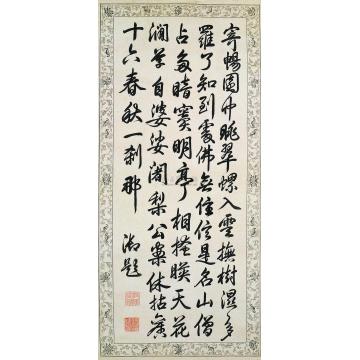 寄暢園中眺翠螺入雲撫樹濕多
羅了知到處佛無住信是名山僧
占多暗竇明亭相掩暎天花
澗草自婆娑闍梨公案休拈舉
十六春秋一剎那 御題